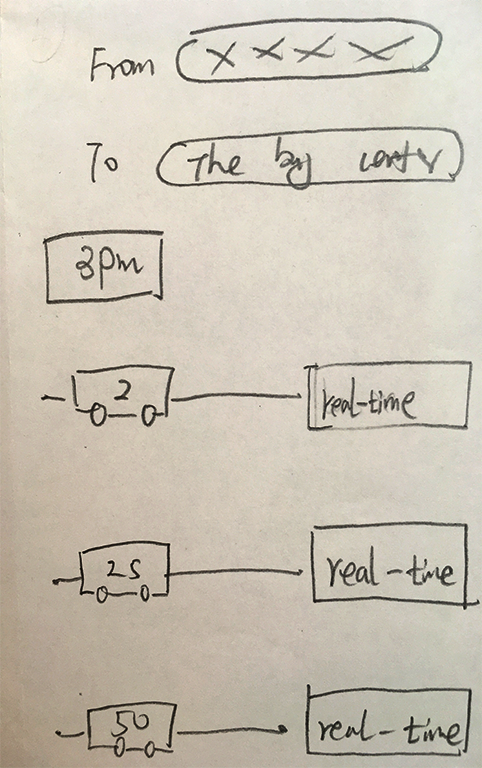 From XXXX
To The
3pm
2 real-time
25 real-time
50 real-time